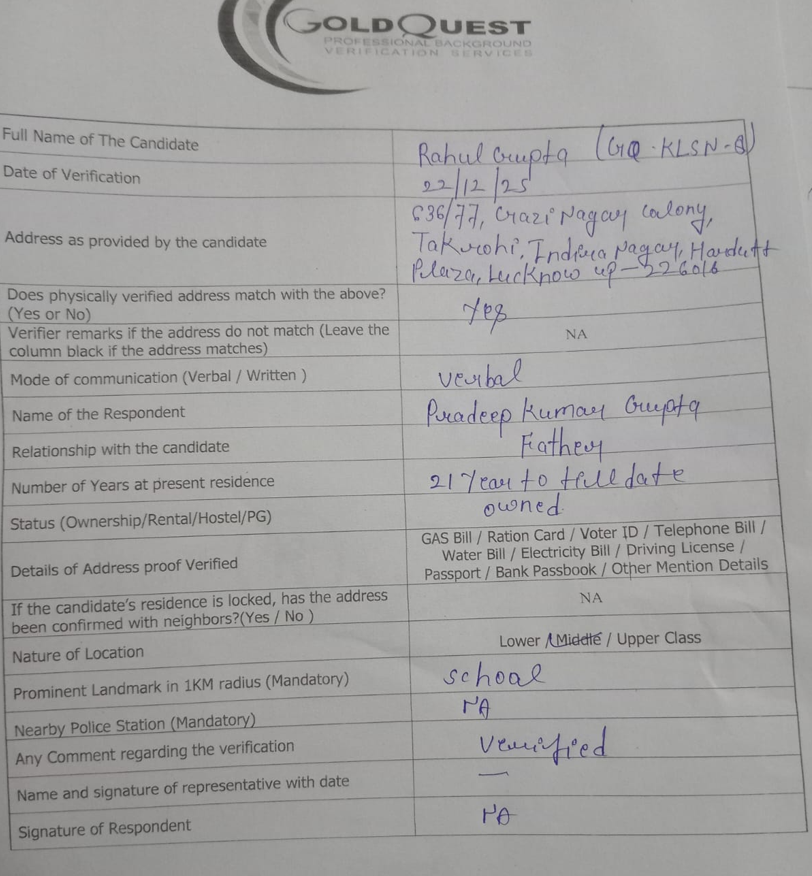 GOLDQUEST
PROFESSIONAL BACKGROUND
VERIFICATION SERVICES
Full Name of The Candidate
Rahul Gupta (GQ-KLSN-8)
Date of Verification
22/12/25
Address as provided by the candidate
636/77, Gazi Nagar Colony,
Takrohi, Indira Nagar, Hardutt
Plaza, Lucknow up-226016
Does physically verified address match with the above?
(Yes or No)
Yes
Verifier remarks if the address do not match (Leave the
column black if the address matches)
NA
Mode of communication (Verbal / Written )
verbal
Name of the Respondent
Pradeep Kumar Gupta
Relationship with the candidate
Father
Number of Years at present residence
21 Year to till date
Status (Ownership/Rental/Hostel/PG)
owned
Details of Address proof Verified
GAS Bill / Ration Card / Voter ID / Telephone Bill /
Water Bill / Electricity Bill / Driving License /
Passport / Bank Passbook / Other Mention Details
If the candidate's residence is locked, has the address
been confirmed with neighbors?(Yes / No )
NA
Nature of Location
Lower / Middle / Upper Class
Prominent Landmark in 1KM radius (Mandatory)
school
Nearby Police Station (Mandatory)
NA
Any Comment regarding the verification
Verified
Name and signature of representative with date
—
Signature of Respondent
NA